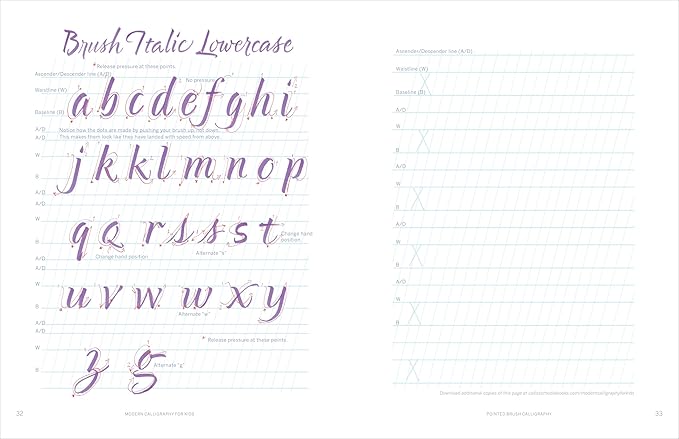 Brush Italic Lowercase
* Release pressure at these points.
No pressure
Ascender/Descender line (A/D)
Waistline (W)
Baseline (B)
a b c d e f g h i
A/D
Notice how the dots are made by pushing your brush up, not down.
This makes them look like they have landed with speed from above.
A/D
W
B
j k k l m n o p
A/D
A/D
W
B
q q r s s s t
Change hand position.
Alternate "s"
Change hand position
A/D
A/D
W
B
u v w w x y
Alternate "w"
A/D
A/D
* Release pressure at these points.
W
B
z g
Alternate "g"
A/D
32
MODERN CALLIGRAPHY FOR KIDS
Ascender/Descender line (A/D)
Waistline (W)
Baseline (B)
X
A/D
W
B
X
A/D
W
B
X
A/D
W
B
X
A/D
W
B
X
A/D
W
B
X
POINTED BRUSH CALLIGRAPHY
33